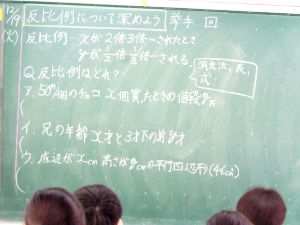 12/19 (火)
反比例について深めよう 挙手 回
反比例…xが2倍3倍…されたとき
yが1/2倍1/3倍…される
Q.反比例はどれ？
式
ア.50円/個のチョコ x個買ったときの値段y円
イ.兄の年齢x才と3才下の弟y才
ウ.底辺がxcm高さがycmの平行四辺形(46cm²)